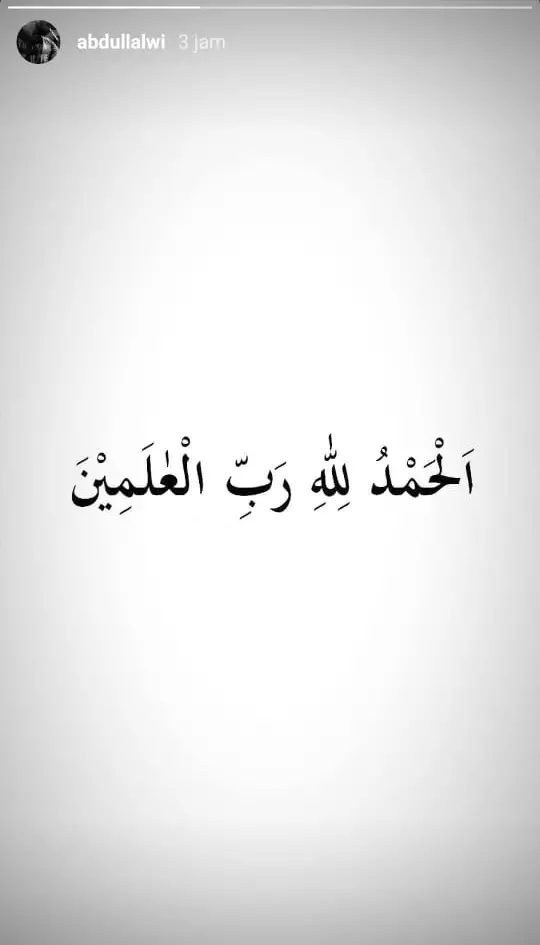 abdullalwi 3 jam
اَلْحَمْدُ لِلّٰهِ رَبِّ الْعٰلَمِيْنَ